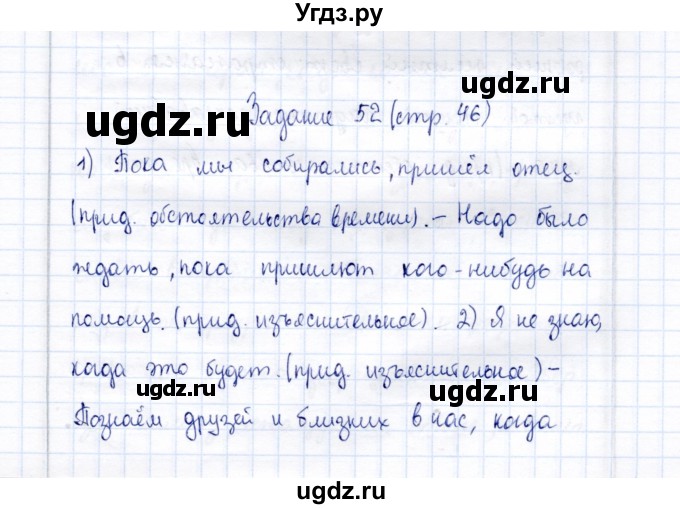 Угдз.ру
ugdz.ru
ugdz.ru
Задание 52 (стр. 46)
1) Пока мы собирались, пришёл отец.
(прид. обстоятельства времени). – Надо было
ждать, пока пришлют кого-нибудь на
помощь. (прид. изъяснительное). 2) Я не знаю,
когда это будет. (прид. изъяснительное) –
ugdz.ru
ugdz.ru
Познаём друзей и близких в час, когда
ugdz.ru